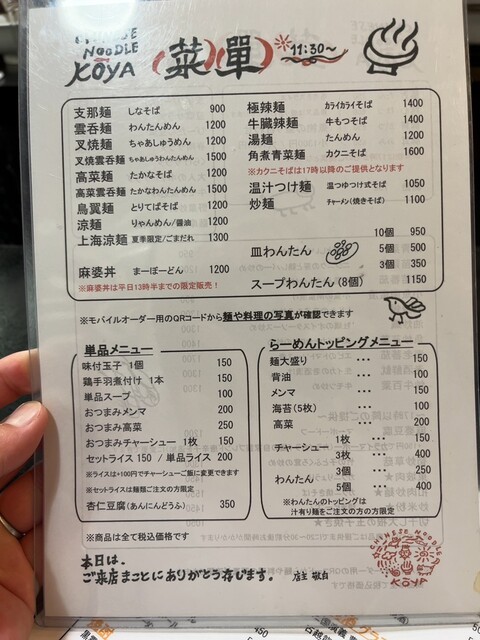 CHINESE
NOODLE
KOYA
菜單
11:30～
支那麺 しなそば 900
雲呑麺 わんたんめん 1200
叉焼麺 ちゃあしゅうめん 1200
叉焼雲呑麺 ちゃあしゅうわんたんめん 1500
高菜麺 たかなそば 1200
高菜雲呑麺 たかなわんたんめん 1500
鳥翼麺 とりてばそば 1200
涼麺 りゃんめん/醤油 1200
上海涼麺 夏季限定/ごまだれ 1300
麻婆丼 まーぼーどん 1200
※麻婆丼は平日13時半までの限定販売！
極辣麺 カライカライそば 1400
牛臓辣麺 牛もつそば 1400
湯麺 たんめん 1200
角煮青菜麺 カクニそば 1600
※カクニそばは17時以降のご提供となります
温汁つけ麺 温つゆつけ式そば 1050
炒麺 チャーメン(焼きそば) 1100
皿わんたん 10個 950
5個 500
3個 350
スープわんたん(8個) 1150
※モバイルオーダー用のQRコードから麺や料理の写真が確認できます
単品メニュー
味付玉子 1個 150
鶏手羽煮付け 1本 150
単品スープ 100
おつまみメンマ 200
おつまみ高菜 250
おつまみチャーシュー 1枚 150
セットライス 150 / 単品ライス 200
※ライスは+100円でチャーシューご飯に変更できます
※セットライスは麺類ご注文の方限定
杏仁豆腐(あんにんどうふ) 350
らーめんトッピングメニュー
麺大盛り ・・・ 150
背油 ・・・ 100
メンマ ・・・ 150
海苔(5枚) ・・・ 100
高菜 ・・・ 200
チャーシュー 1枚 ・・・ 150
3枚 ・・・ 400
わんたん 3個 ・・・ 250
5個 ・・・ 400
※わんたんのトッピングは
汁有り麺をご注文の方の限定
※商品は全て税込価格です
本日は、
ご来店まことにありがとう存じます。 店主 敬白
CHINESE NOODLE
KOYA